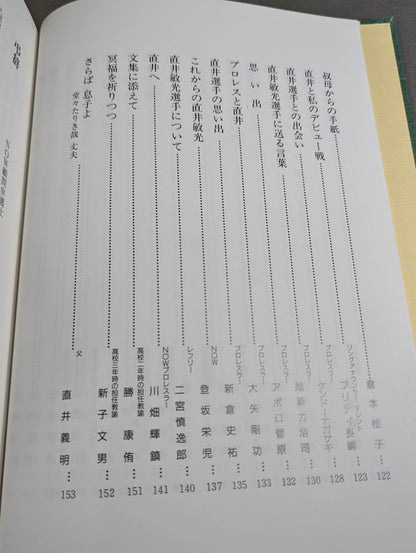 叔母からの手紙……倉本松子…122
直井と私のデビュー戦……リングアナウンサー・タレント プリティ長嶋…123
直井選手との出会い……プロレスラー ケンドーナガサキ…128
直井敏光選手に送る言葉……プロレスラー 維新力浩司…130
思い出……プロレスラー アポロ菅原…132
プロレスと直井……プロレスラー 大矢剛功…133
直井選手の思い出……プロレスラー 新倉史祐…135
これからの直井敏光……NOW 登坂栄児…137
直井敏光選手について……レフリー 二宮慎逸郎…140
直井へ……NOWプロレスラー 川畑輝鎮…141
文集に添えて……高校二年時の担任教諭 勝康侑…151
冥福を祈りつつ……高校三年時の担任教諭 新子文男…152
さらば息子よ……父 直井義明…153
堂々たりき哉 丈夫
NOW顧問弁護士